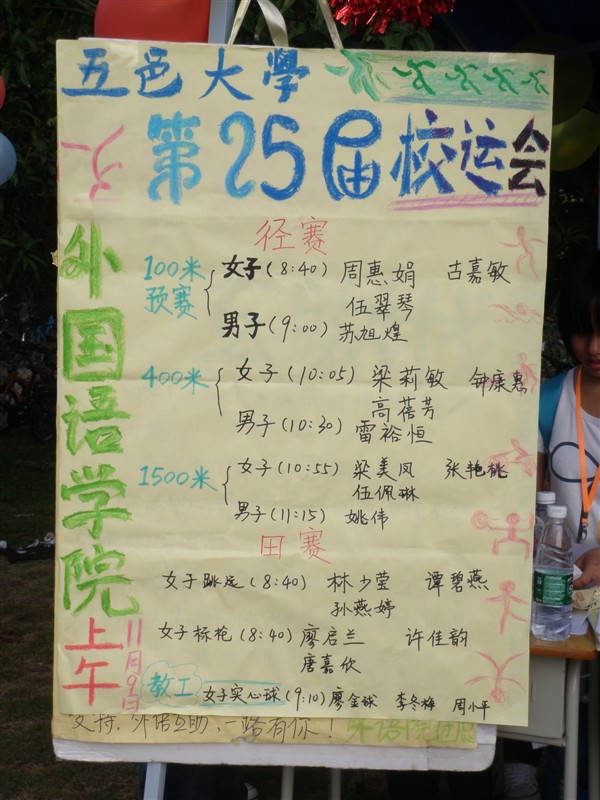 五邑大學
第25届校运会
外国语学院
上午
11月9日
径赛
100米预赛
女子(8:40) 周惠娟 古嘉敏
伍翠琴
男子(9:00) 苏旭煌
400米
女子(10:05) 梁莉敏 钟康惠
高蓓芳
男子(10:30) 雷裕恒
1500米
女子(10:55) 梁美凤 张艳桃
伍佩琳
男子(11:15) 姚伟
田赛
女子跳远(8:40) 林少莹 谭碧燕
孙燕婷
女子标枪(8:40) 廖启兰 许佳韵
唐嘉欣
教工
女子实心球(9:10) 廖金球 李冬梅 周小平
支持,外语互助,一路有你!
外语院